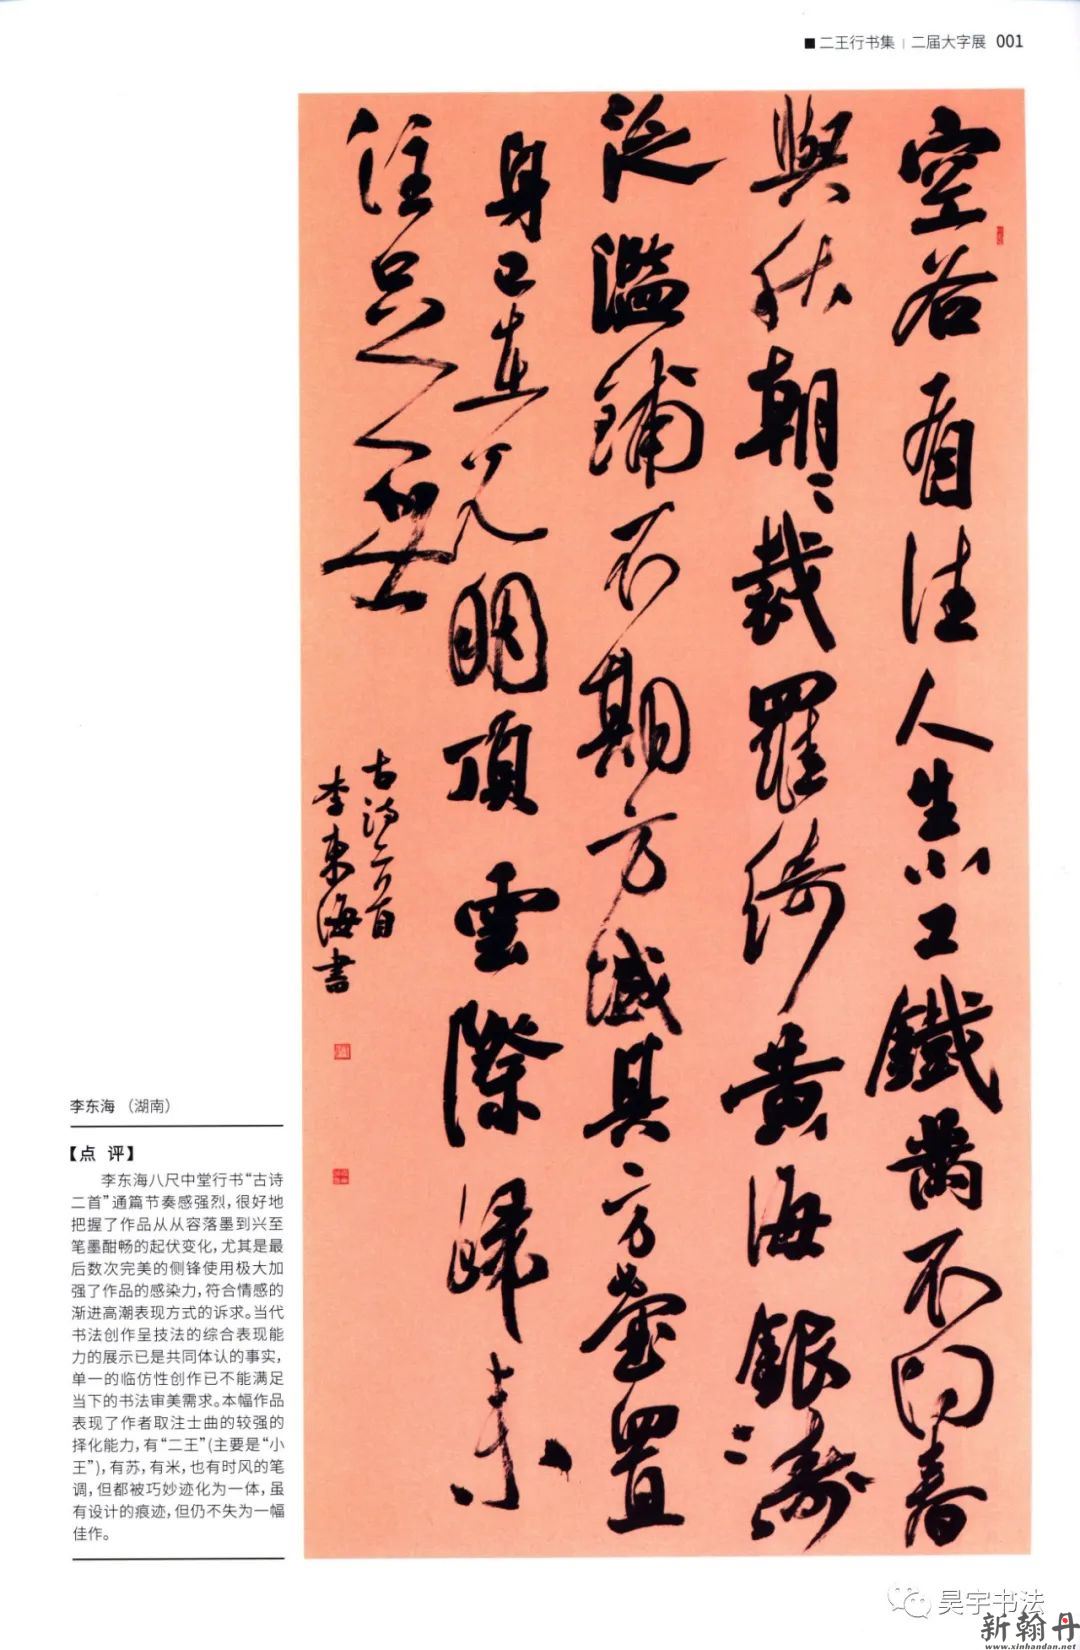 ■二王行书集 | 二届大字展 001
空谷有佳人生小工鐵黹不问春
與秋朝〻裁羅綺黄海銀〻濤
泛濫鋪不期方減其方壑置
身已在光明頂雲際歸来
住足無
古诗二首
李東海書
李东海 （湖南）
【点 评】
李东海八尺中堂行书“古诗
二首”通篇节奏感强烈，很好地
把握了作品从从容落墨到兴至
笔墨酣畅的起伏变化，尤其是最
后数次完美的侧锋使用极大加
强了作品的感染力，符合情感的
渐进高潮表现方式的诉求。当代
书法创作呈技法的综合表现能
力的展示已是共同体认的事实，
单一的临仿性创作已不能满足
当下的书法审美需求。本幅作品
表现了作者取注士曲的较强的
择化能力，有“二王”(主要是“小
王”)，有苏，有米，也有时风的笔
调，但都被巧妙迹化为一体，虽
有设计的痕迹，但仍不失为一幅
佳作。
昊宇书法
新翰丹
www.xinhandan.net